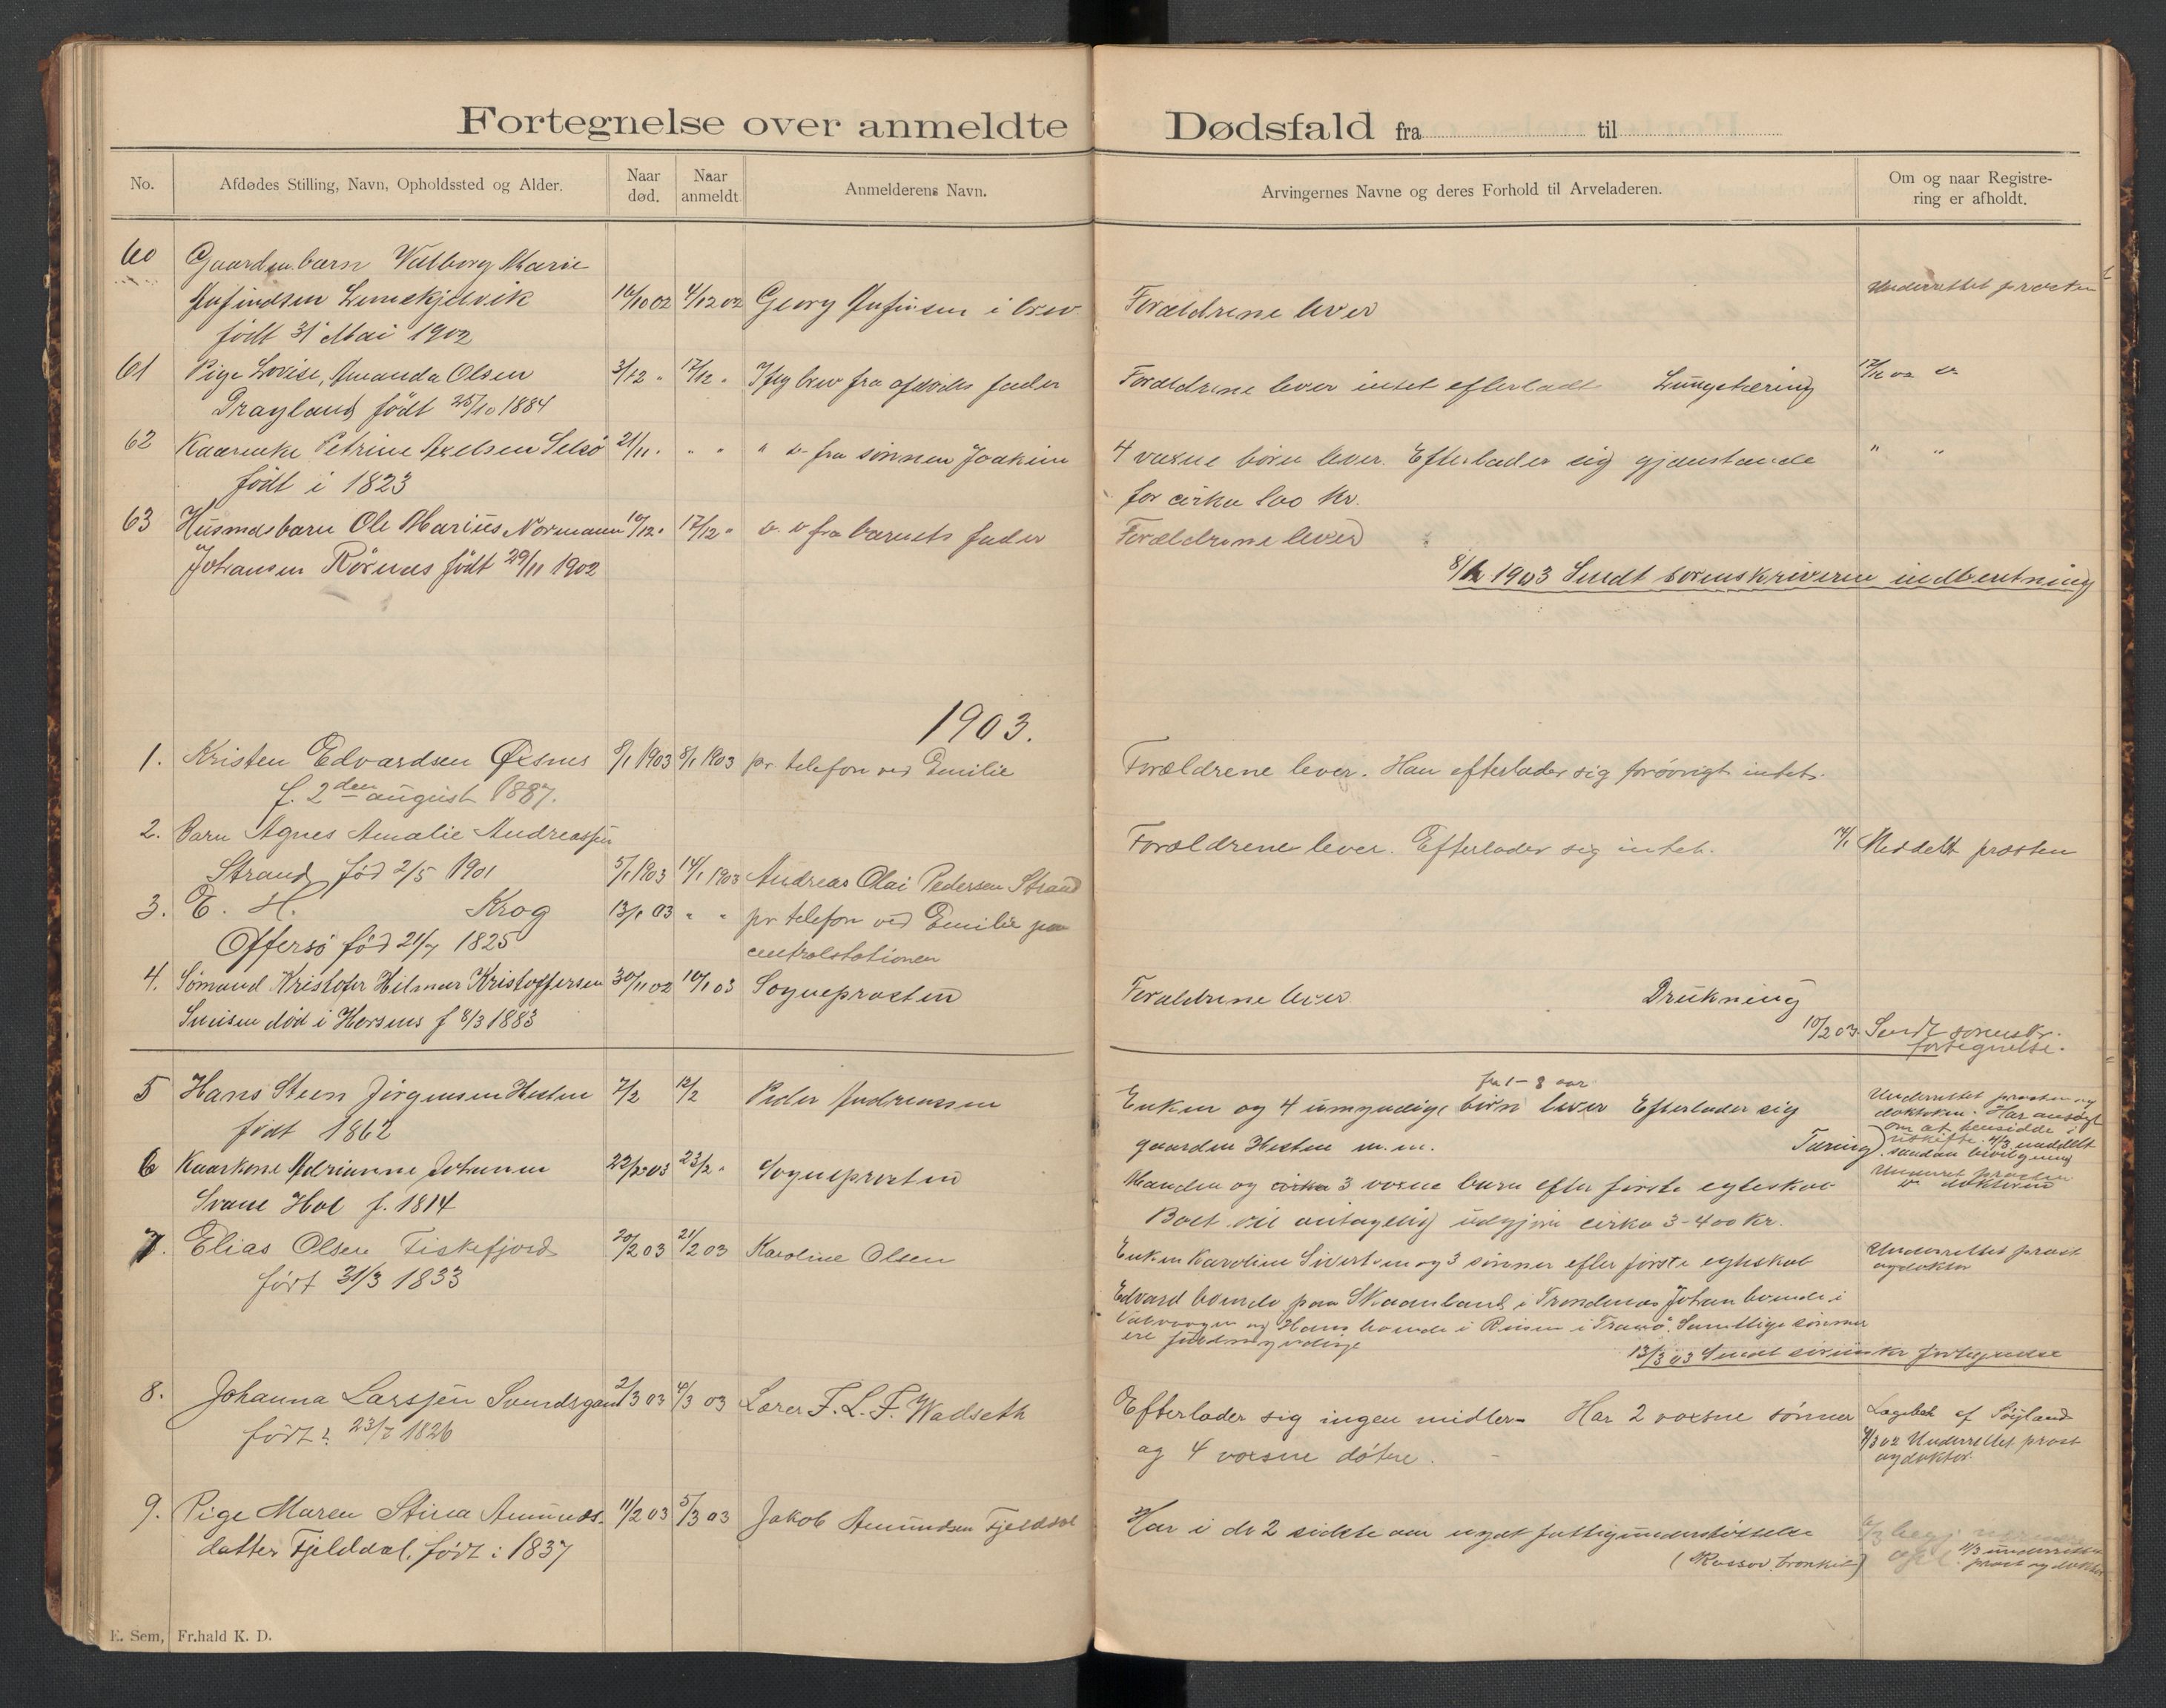 Fortegnelse over anmeldte Dødsfald fra til
No.
Afdødes Stilling, Navn, Opholdssted og Alder.
Naar død.
Naar anmeldt
Anmelderens Navn.
Arvingernes Navne og deres Forhold til Arveladeren.
Om og naar Registrering er afholdt.
60 Gaardm.barn Valborg Marie
Underrettet præsten
16/10 02 4/12 02 Georg i brev Forældrene lever
født 31 Mai 1902
61 Pige Lovise, Amanda Olsen 3/12 " 17/12 " Ifølg brev fra afdødes fader Forældrene lever intet efterladt Lungetæring 17/12 02
Dragland født 25/10 1884
62 Kaarenke Petrine Axelsen Selsö 21/11 " " " fra sönnen Joakim 4 voxne börn lever. Efterlader sig gjenstande " "
født i 1823 for cirka 100 Kr.
63 Husmdsbarn Ole Marius Normann 10/12 " 17/12 " fra barnets fader Forældrene lever
Johansen Rörnes født 29/11 1902
1903 Sendt sorenskriveren indberetning
1903.
1. Kristen Edvardsen Öxnes 8/1 1903 8/1 1903 pr. telefon ved Emilie Forældrene lever. Han efterlader sig forövrigt intet.
f. 2den august 1887.
2. Barn Agnes Amalie Andreassen Forældrene lever. Efterlader sig intet. 14/1 Meddelt præsten
Strand, fød 2/5 1901 5/1 1903 14/1 1903 Andreas Olai Pedersen Strand
3. E. H. Krog 13/1 03 " " pr telefon ved Emilie paa
Offersö fød 21/7 1825 centralstationen
4. Sömand Kristofer Hilmar Kristoffersen 30/11 02 10/1 03 Sognepræsten Forældrene lever Drukning
død i Horsens f 8/3 1883
10/2 03. Sendt sorenskr. fortegnelse.
5 Hans Steen Jörgensen Hesten 7/2 12/2 Peder Andreassen
fra 1-8 aar
Enken og 4 umyndige börn lever Efterlader sig
født 1862
gaarden Hesten m.m. Tæring
Underrettet præsten og
doktoren. Har ansögt
om at hensidde i
uskifte. 4/3 meddelt
saadan bevilgning
6 Kaarkone Adrianne Johanna 22/2 03 23/2 " Sognepræsten Manden og 3 voxne barn efter förste egteskab
Underret præsten
doktoren
Svane Hol f. 1814 Boet vil antagelig udgjöre cirka 3-400 Kr.
7. Elias Olsen Fiskefjord 20/2 03 21/2 03 Karoline Olsen Enken Karoline Sivertsen og 3 sönner efter förste egteskab
Underrettet præst
og doktor
født 31/3 1833 Edvard boende paa Skaanland i Trondenes Johan boende i
og Hans boende i Reisen i Tromsö. Samtlige sönner
ere fuldmyndige
13/3 03 Sendt sorenskr fortegnelse
8. Johanna Larsjen Sandsgam 2/3 03 4/3 03 Lærer F. L. F. Wadseth Efterlader sig ingen midler. Har 2 voxne sönner
født 1826 og 4 voxne döttre.
Underrettet præst
og doktor.
9. Pige Maren Stina Amunds- 11/2 03 5/3 03 Jakob Amundsen Fjelddal Har i de 2 sidste aar nydt fattigunderstöttelse
datter Fjelddal, født i 1837 ( bronkit)
11/3 underrettet
præst og doktor
E. Sem, Fr.hald K. D.